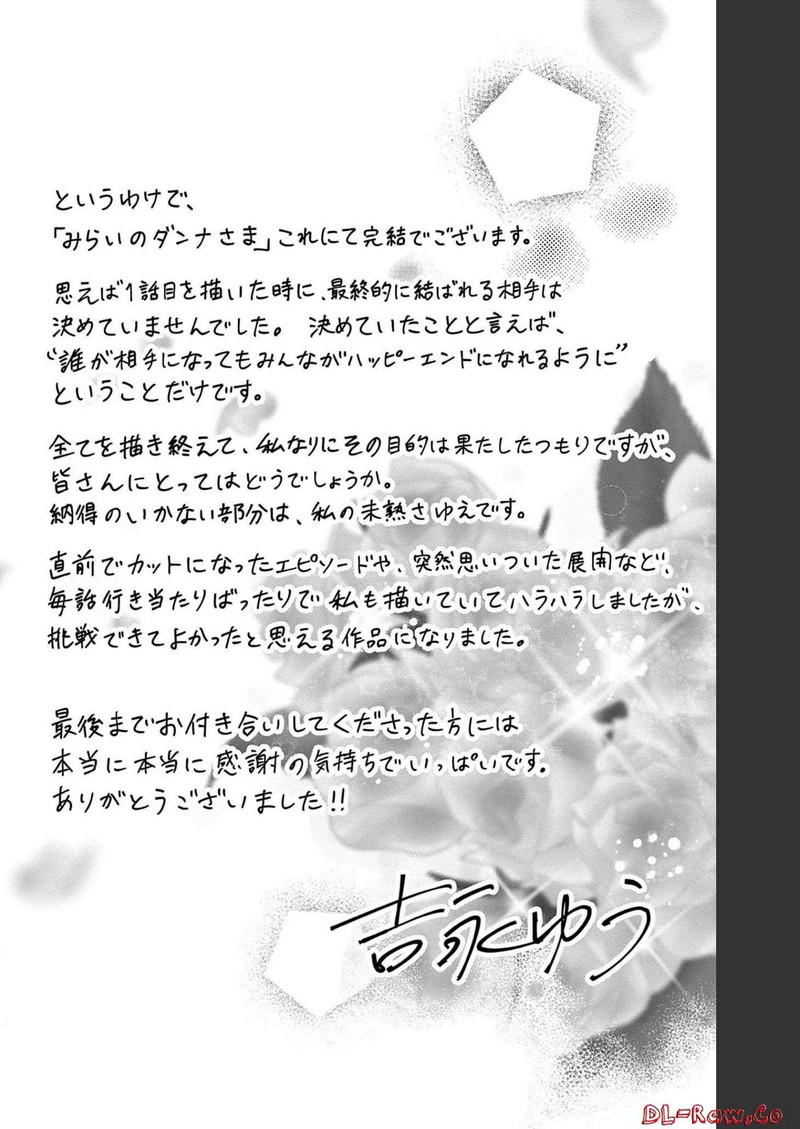 というわけで、
「みらいのダンナさま」これにて完結でございます。
思えば1話目を描いた時に、最終的に結ばれる相手は
決めていませんでした。 決めていたことと言えば、
“誰が相手になってもみんながハッピーエンドになれるように”
ということだけです。
全てを描き終えて、私なりにその目的は果たしたつもりですが、
皆さんにとってはどうでしょうか。
納得のいかない部分は、私の未熟さゆえです。
直前でカットになったエピソードや、突然思いついた展開など、
毎話行き当たりばったりで私も描いていてハラハラしましたが、
挑戦できてよかったと思える作品になりました。
最後までお付き合いしてくださった方には
本当に本当に感謝の気持ちでいっぱいです。
ありがとうございました!!
吉永ゆう
DL-Raw.Co